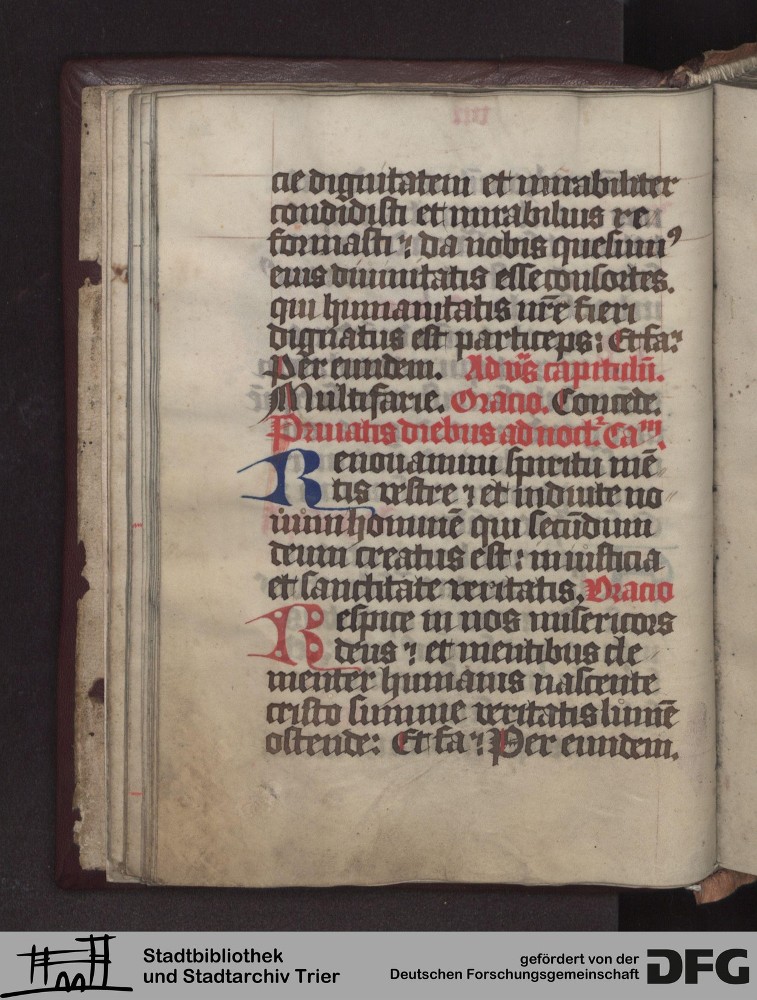 cie dignitatem et mirabiliter
condidisti et mirabilius re
formasti : da nobis quesumꝰ
eius diuinitatis esse consortes.
qui humanitatis nr̄e fieri
dignatus est particeps : Et fa:
Per eundem. Ad vs̄ capitulū.
Multifarie. Oracio. Concede.
Priuatis diebus ad noct: Caᵐ.
Renouamini spiritu mē
tis vestre : et induite no
uum hominē qui secūdum
deum creatus est : in iusticia
et sanctitate veritatis. Oracio
Respice in nos misericors
deus : et mentibus cle
menter humanis nascente
cristo summe veritatis lumē
ostende : Et fa : Per eundem.
Stadtbibliothek
und Stadtarchiv Trier
gefördert von der
Deutschen Forschungsgemeinschaft
DFG